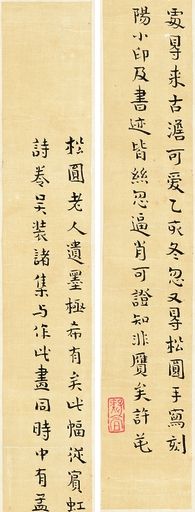 松圓老人遺墨極希有矣此幅從賓虹
處㝵来古澹可愛乙亥冬忽又㝵松圓手寫刻
詩卷吴裝諸集与作此畫同時中有孟
陽小印及書迹皆絲忽逼肖可證知非贋矣許芚